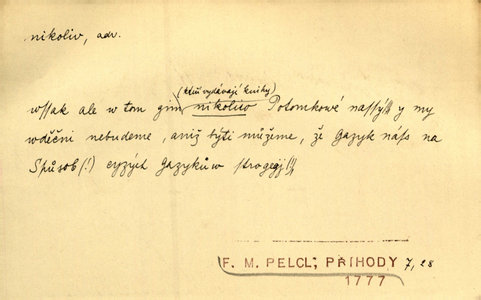 nikoliv, adv.
(kteří vydávají knihy)
wssak ale w tom gim nikoliw Potomkové nassy y my
wděčni nebudeme, aniž týti můžeme, že Gazyk náss na
Spůsob (!) cyzých Gazykůw strogegj
F. M. PELCL, PŘÍHODY 7, 28
1777